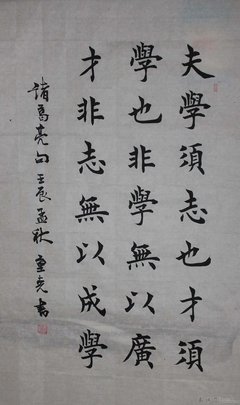 夫學須志也才須
學也非學無以廣
才非志無以成學
諸葛亮句 壬辰孟秋 重堯書